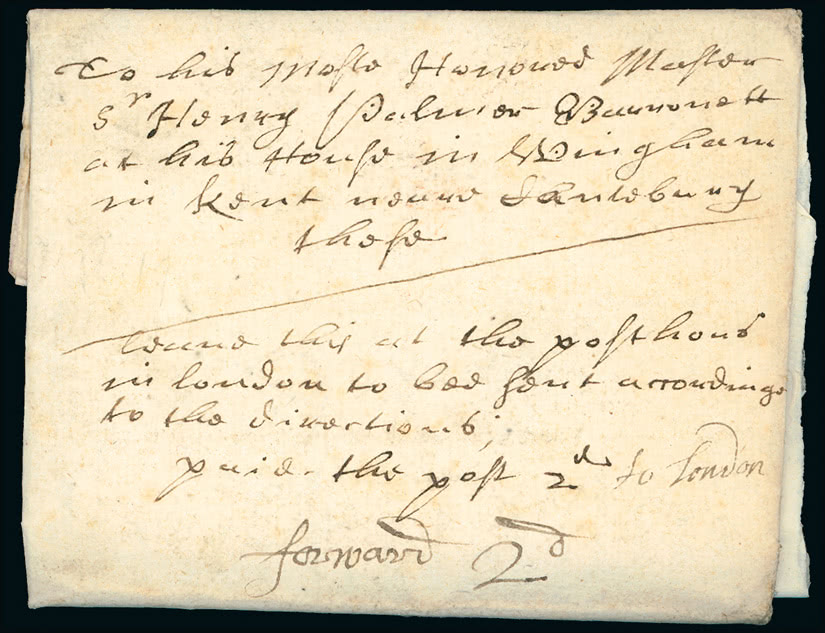 To his Moste Honored Master
Sr Henry Palmer Barronett
at his House in Wingham
in Kent neare Cantebury
these
leaue this at the posthous
in london to bee sent accordinge
to the directions;
paid the post 2d to london
forward 2d